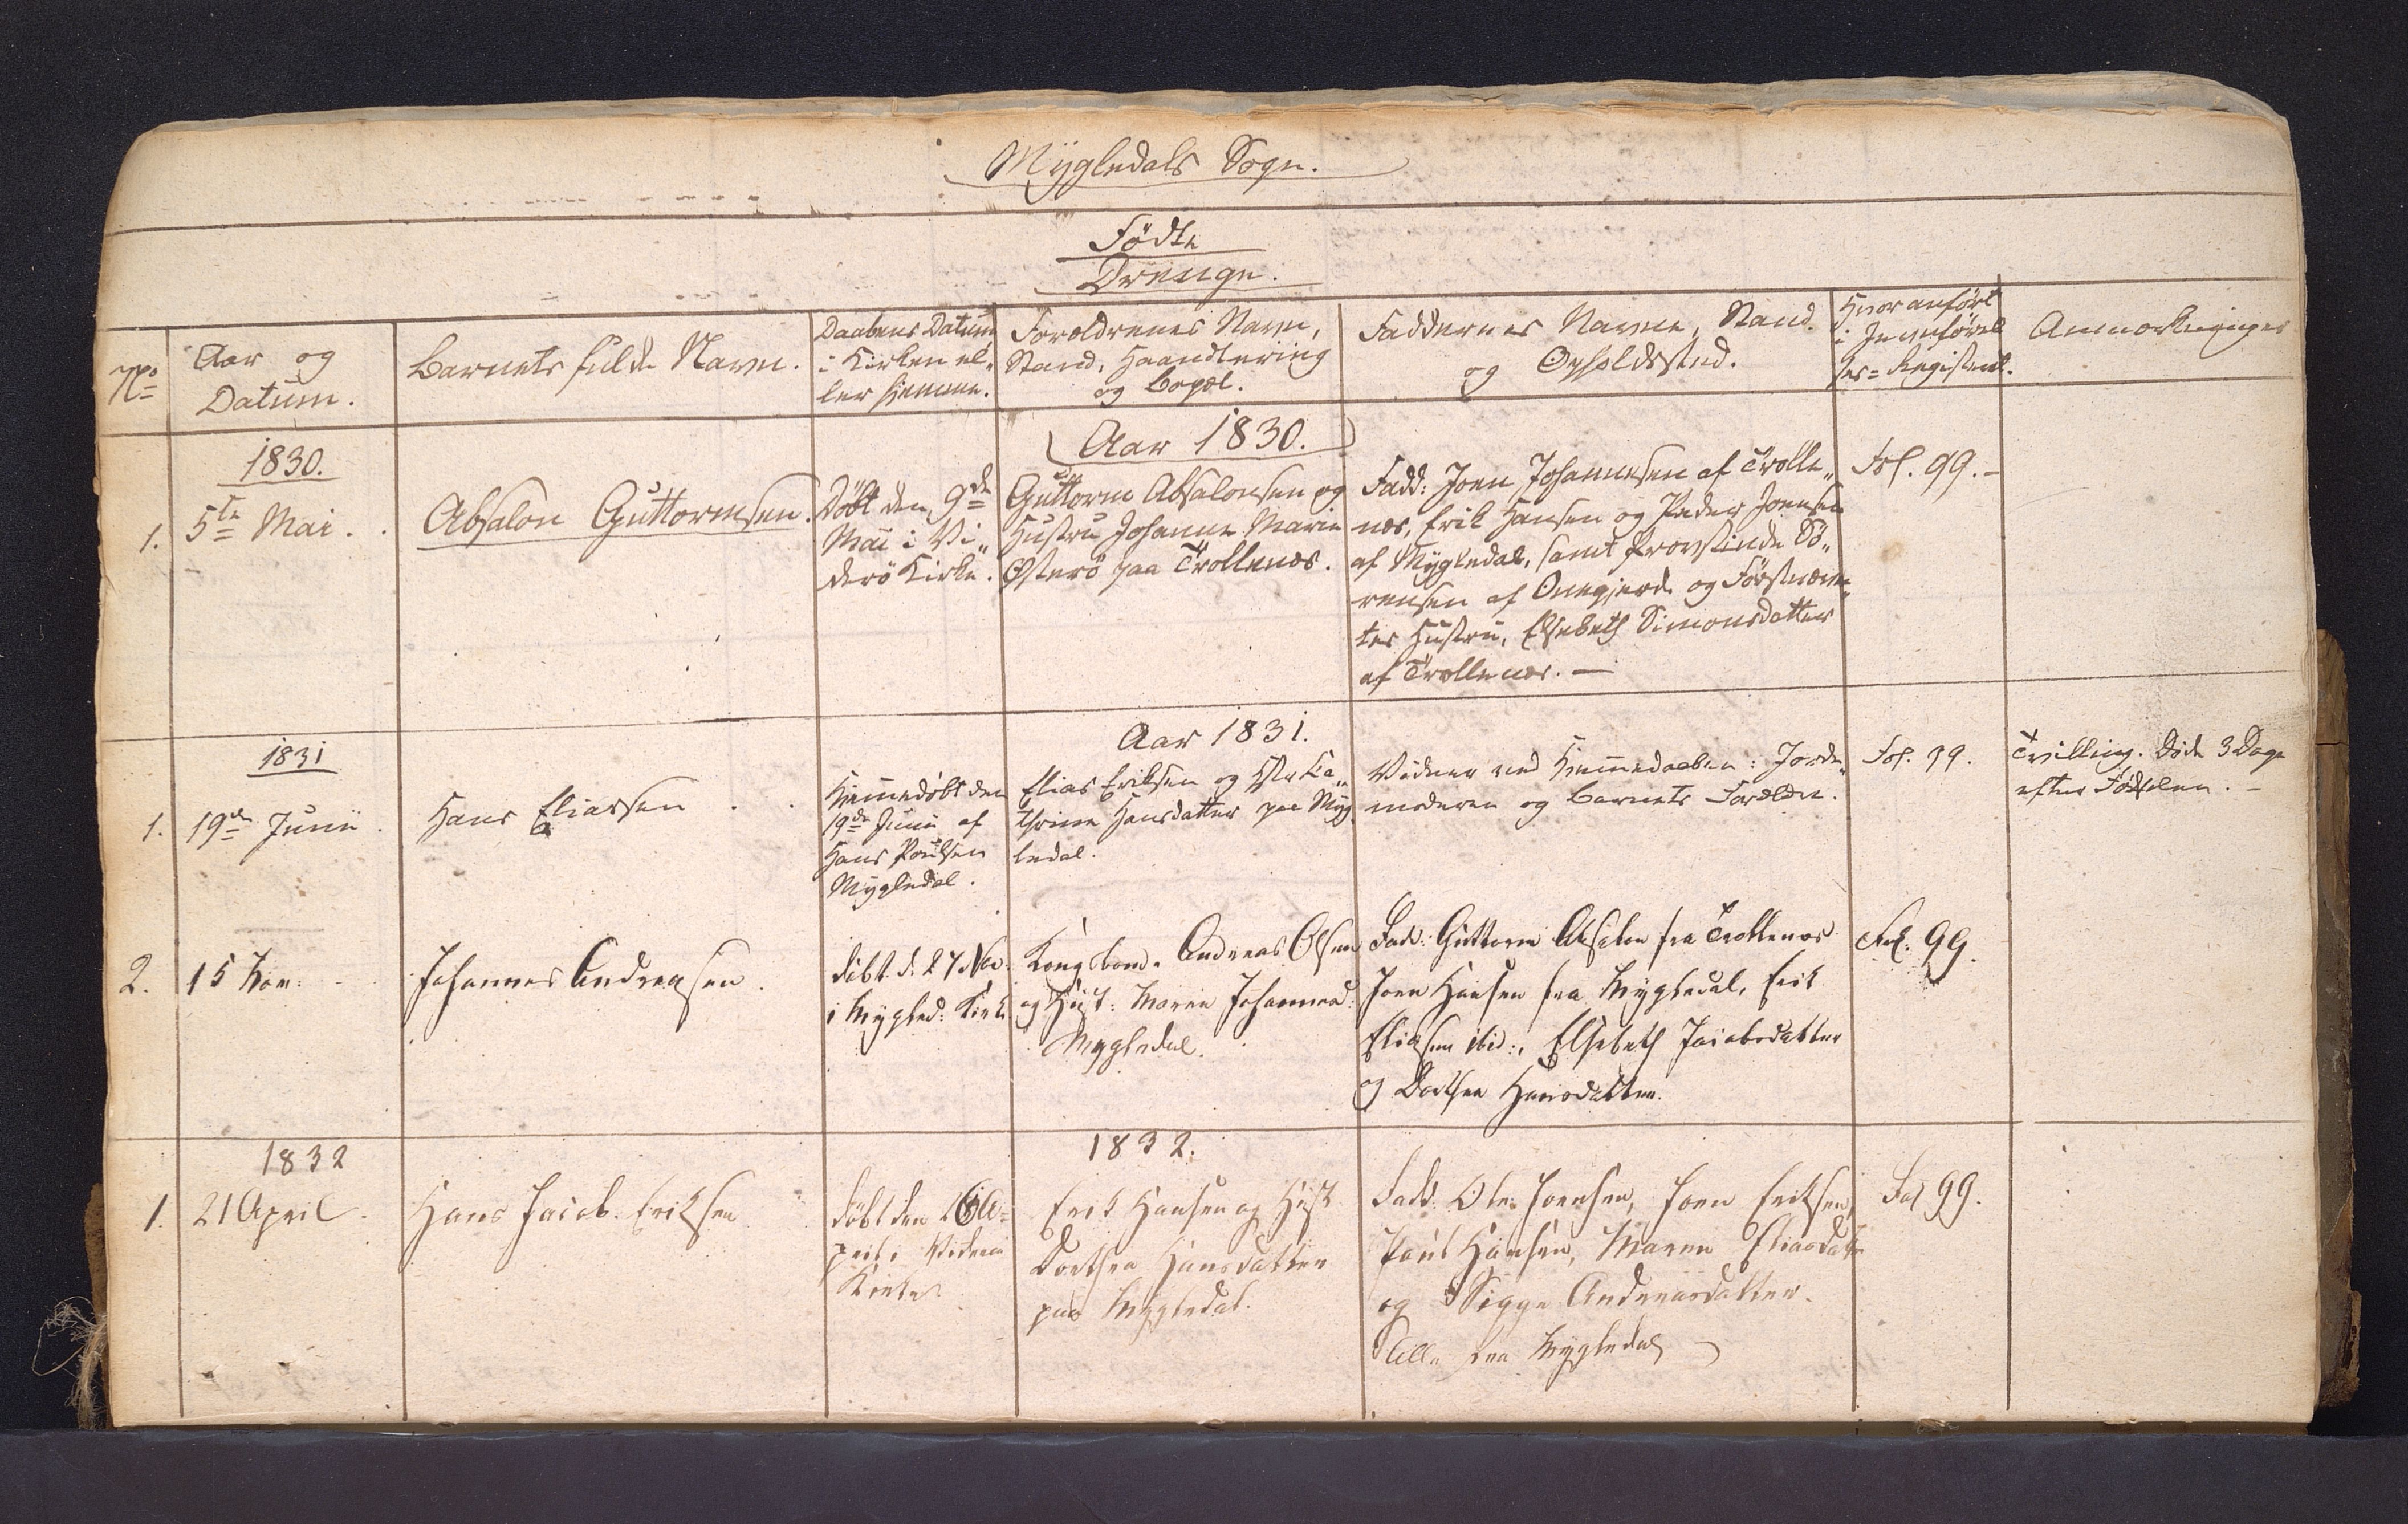 Mÿgledals Sogn.
Födte
Drenge.
No
Aar og
Datum.
Barnets fulde Navn.
Daabens Datum
i Kirken el„
ler hjemme.
Forældrenes Navn,
Stand, Haandtering
og Bopæl.
Faddernes Navne, Stand
og Opholdssted.
Hvor anført
i Jevnførel
ses=Registeret.
Anmærkninger
1830.
Aar 1830.
1.
5te Mai.
Absalon Guttormsen.
Döbt den 9de
Mai i Vi„
derö Kirke.
Guttorm Absalonsen og
Hustru Johanne Marie
Østerö paa Trollenæs.
Fadd: Joen Johannesen af Trolle„
næs, Erik Hansen og Peder Joensen
af Mygledal, samt Provstinde Sö„
rensen af Onegjerde og Førstnævn„
tes Hustru, Elsebeth Simonsdatter
af Trollenæs. —
Fol. 99. -
1831
Aar 1831.
1.
19de Junii.
Hans Eliassen
Hjemmedöbt den
19de Junii af
Hans Poulsen
Mygledal.
Elias Eriksen og Hstr Ca„
thrine Hansdatter paa Myg
ledal.
Vidner ved Hjemmedaaben: Jorde„
moderen og Barnets Forældre.
Fol. 99.
Tvilling. Döde 3 Dage
efter Födselen. -
2.
15 Nov:
Johannes Andreasen.
döbt d. 27 Nov.
i Mygled: Kirke
Kongsbonde Andreas Olsen
og Hust: Maren Johannesd:
Mygledal.
Fadd: Guttorm Absalon fra Trollenæs
Joen Hansen fra Mygledal, Erik
Eliasen ibid:, Elsebeth Jacobsdatter
og Dorthea Hansdatter.
Fol: 99.
1832
1832.
1.
21 April.
Hans Jacob Eriksen
döbt den 26 A=
pril i Viderö
Kirke
Erik Hansen og Hust
Dorthea Hansdatter
paa Mygledal.
Fadd: Ole Joensen, Joen Eriksen,
Poul Hansen, Maren Eliasdatr
og Sigge Andreasdatter.
Alle fra Mygledal
Fol 99.